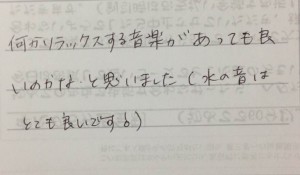 何かリラックスする音楽があっても良
いのかなと思いました(水の音は
とても良いですが)